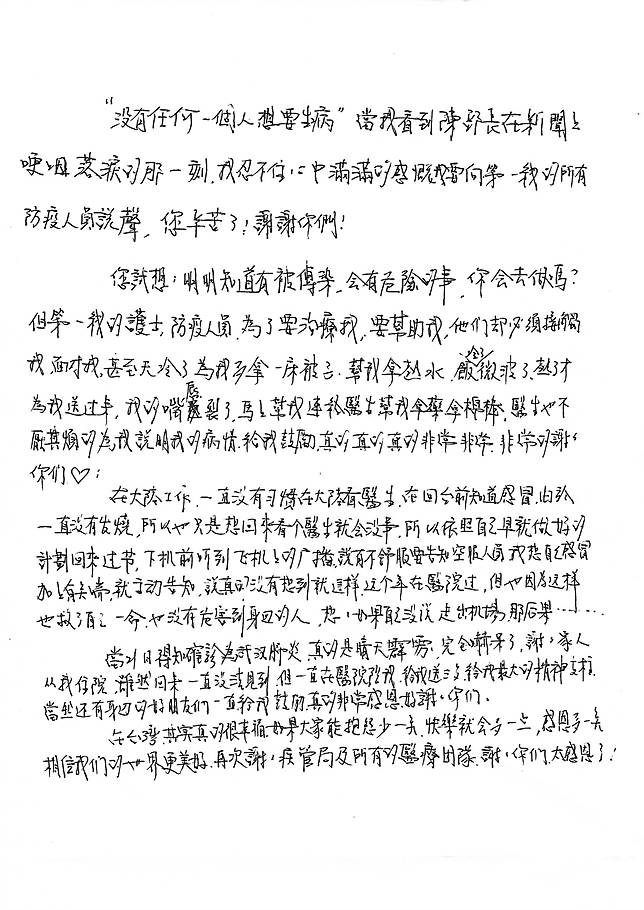 “沒有任何一個人想要生病”當我看到陳部長在新聞上
哽咽落淚的那一刻,我忍不住心中滿滿的感慨我要向第一我的所有
防疫人員說聲,您辛苦了!謝謝你們!
您試想:明明知道有被傳染,会有危險的事,你会去做嗎?
但第一我的護士,防疫人員,為了要治療我,要幫助我,他們却必須接觸
我,面对我,甚至天冷了為我多拿一床被子.幫我拿热水,飯冷了微波了,热了才
為我送过來,我的嘴唇裂了,馬上幫我連絡醫生幫我拿藥拿棉棒,醫生也不
厭其煩的為我說明我的病情.給我鼓励,真的真的真的非常非常.非常的謝謝
你们♡:
在大陸工作,一直沒有习慣在大陸看醫生,在回台前知道感冒,由於
一直沒有发燒,所以也只是想回來看个醫生就会沒事,所以依照自己早就做好的
計劃回來过节,下机前听到飞机上的广播,說有不舒服要告知空服人員,我想自己感冒
加上有鼻涕,就主动告知,說真的沒有想到就這樣,这个年在醫院过,但也因為这样
也救了自己一命,也沒有危害到身边的人,想想如果自己沒說,走出机場,那后果……
當1/21日得知確診為武汉肺炎,真的是晴天霹靂,完全嚇呆了,謝謝家人
从我住院,雖然回来一直沒法見到,但一直在醫院陪我,給我送三餐給我最大的精神支柱,
當然还有身边的好朋友们一直給我鼓励,真的非常感恩好謝謝你们.
在台灣其实真的很幸福,如果大家能抱怨少一点,快樂就会多一点,感恩多一点
相信我們的世界更美好,再次謝謝疾管局及所有的醫療团隊,謝謝你們,太感恩了!